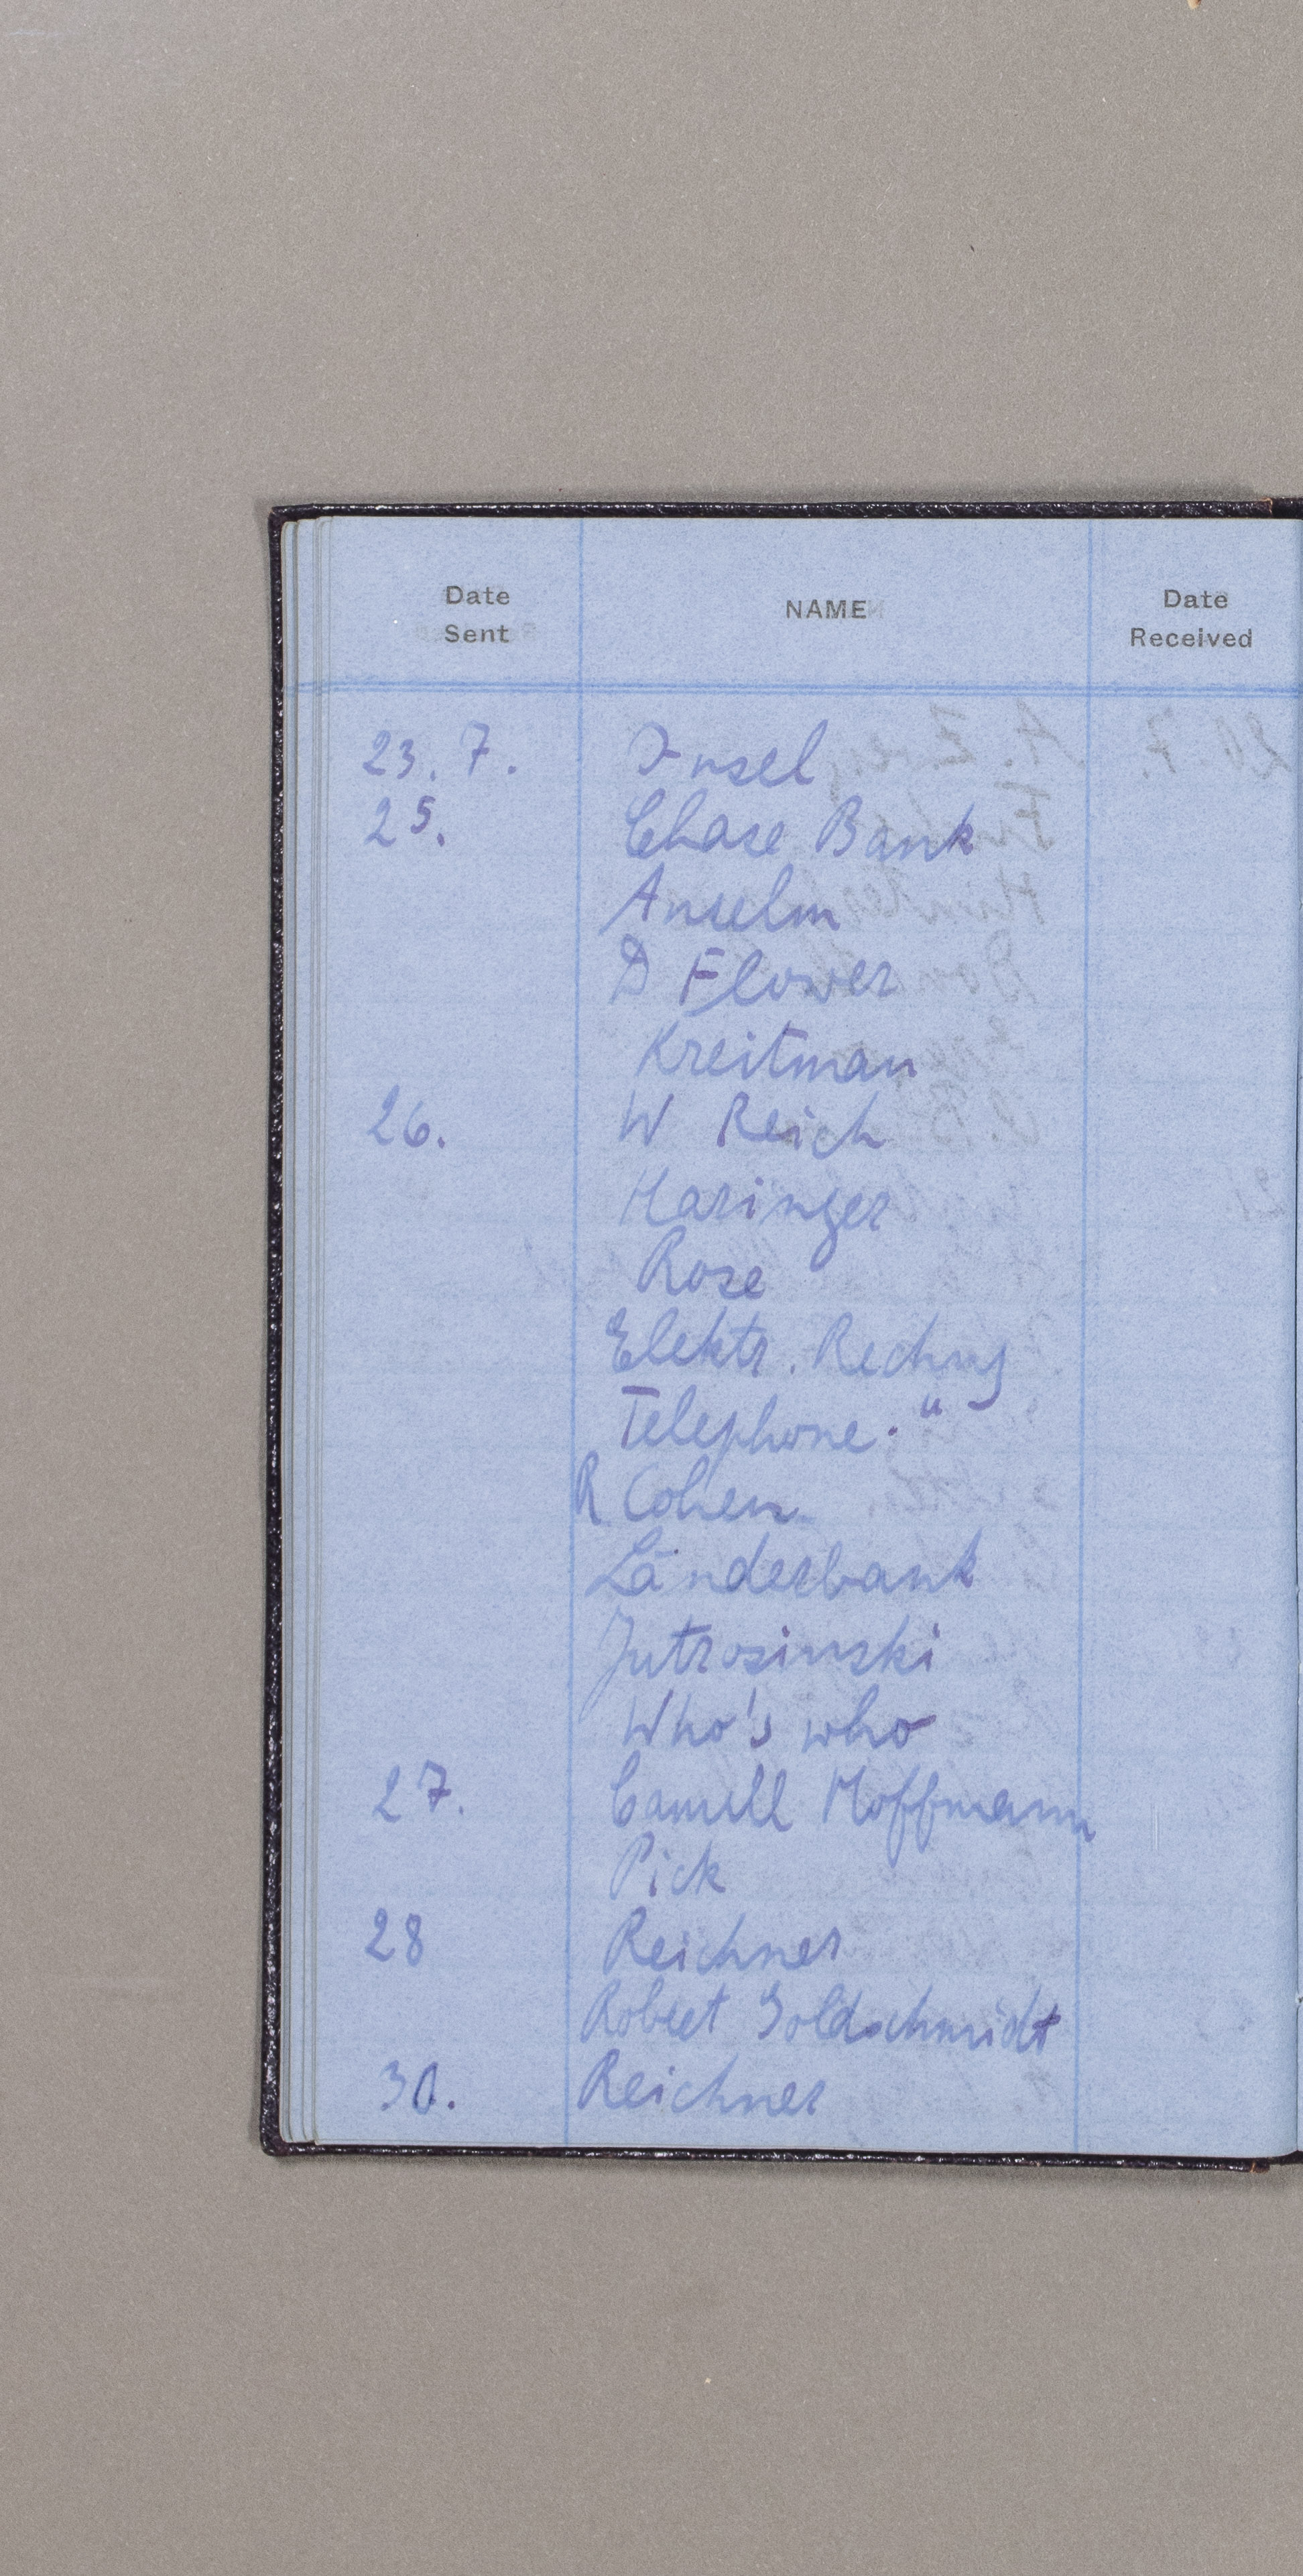 Date Sent NAME Date Received
23. 7. Insel
25. Chase Bank
Anselm
D Flower
Kreitman
26. W Reich
Haringer
Rose
Elektr. Rechng
Telephone. "
R Cohen
Länderbank
Jutrosinski
Who's who
27. Camill Hoffmann
Pick
28 Reichner
Robert Goldschmidt
30. Reichner